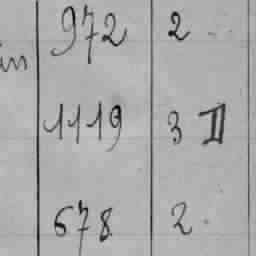 972 2
in
1119 3 II
678 2